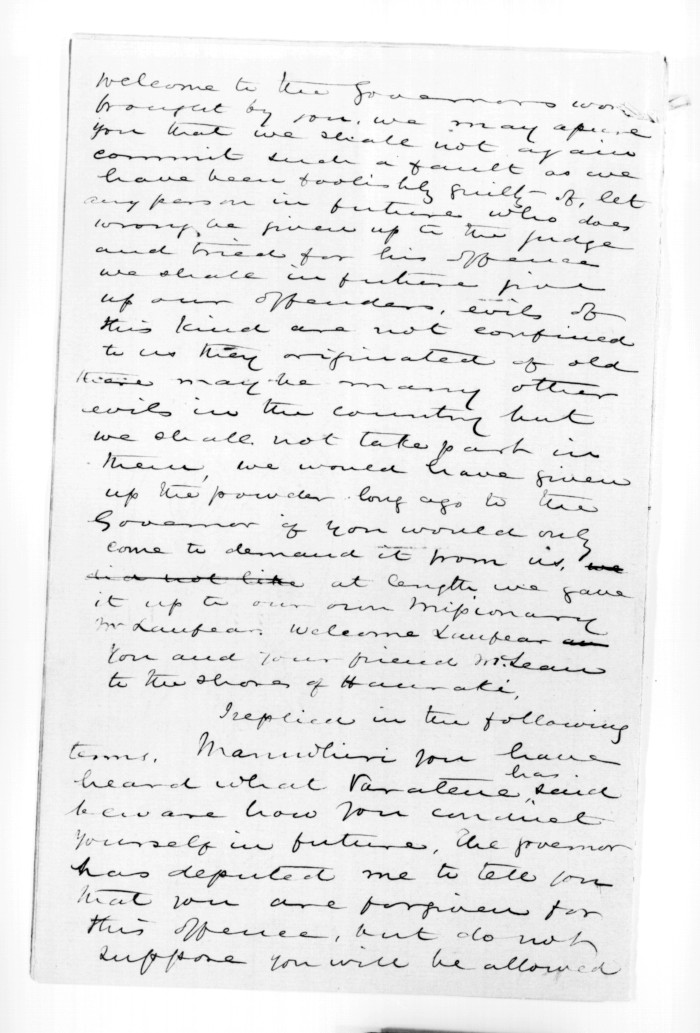 welcome to the Governors word
brought by you. we may assure
you that we shall not again
commit such a fault as we
have been foolishly guilty of, let
any person in future who does
wrong, be given up to the judge
and tried for his offence
we shall in future give
up our offenders, evils of
this kind are not confined
to us they originated of old
there may be many other
evils in the country but
we shall not take part in
them, we would have given
up the powder long ago to the
Governor if you would only
come to demand it from us, we
did not like at length we gave
it up to our own Missionary
Mr Lanfear. Welcome Lanfear an
You and your friend Mc.Lean
to the shores of Hauraki,
I replied in the following
terms. Manuwhiri you have
heard what Taratene has said
beware how you conduct
yourself in future, The governor
has deputed me to tell you
that you are forgiven for
this offence, but do not
suppose you will be allowed